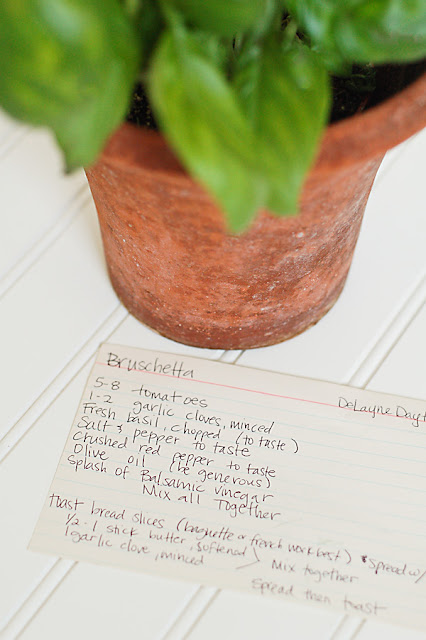 Bruschetta
DeLayne Dayt
5-8 tomatoes
1-2 garlic cloves, minced
Fresh basil, chopped (to taste)
Salt & pepper to taste
Crushed red pepper to taste
Olive oil (be generous)
Splash of Balsamic vinegar
Mix all Together
Toast bread slices (baguette or french work best) spread w/
1/2 - 1 stick butter, softened
1 garlic clove, minced
Mix together
spread then toast